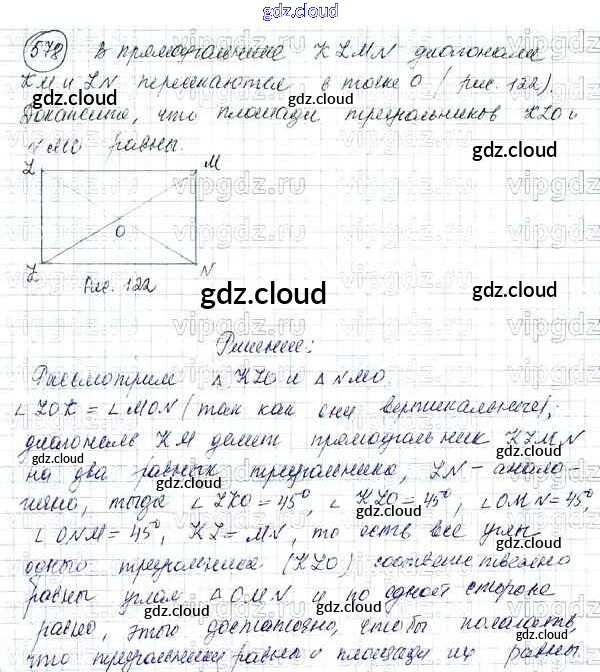 gdz.cloud
578 В прямоугольнике KLMN диагонали
KM и LN пересекаются в точке O (рис. 122).
Докажите, что площади треугольников KLO и
NMO равны.
gdz.cloud
L M
O
N
Рис. 122
gdz.cloud
gdz.cloud
Решение:
Рассмотрим △ KLO и △ NMO.
gdz.cloud
∠ LOK = ∠ MON (так как они вертикальные),
диагональ KM делит прямоугольник KLMN
gdz.cloud
на два равных треугольника, LN – анало-
гично, тогда ∠ LKO = 45°, ∠ KLO = 45°, ∠ OMN = 45°,
gdz.cloud
∠ ONM = 45°, KL = MN, то есть все углы
одного треугольника (KLO) соответственно
gdz.cloud
равны углам △ OMN и по одной стороне
gdz.cloud
равно, этого достаточно, чтобы полагать,
что треугольники равны и площади их равны.
gdz.cloud